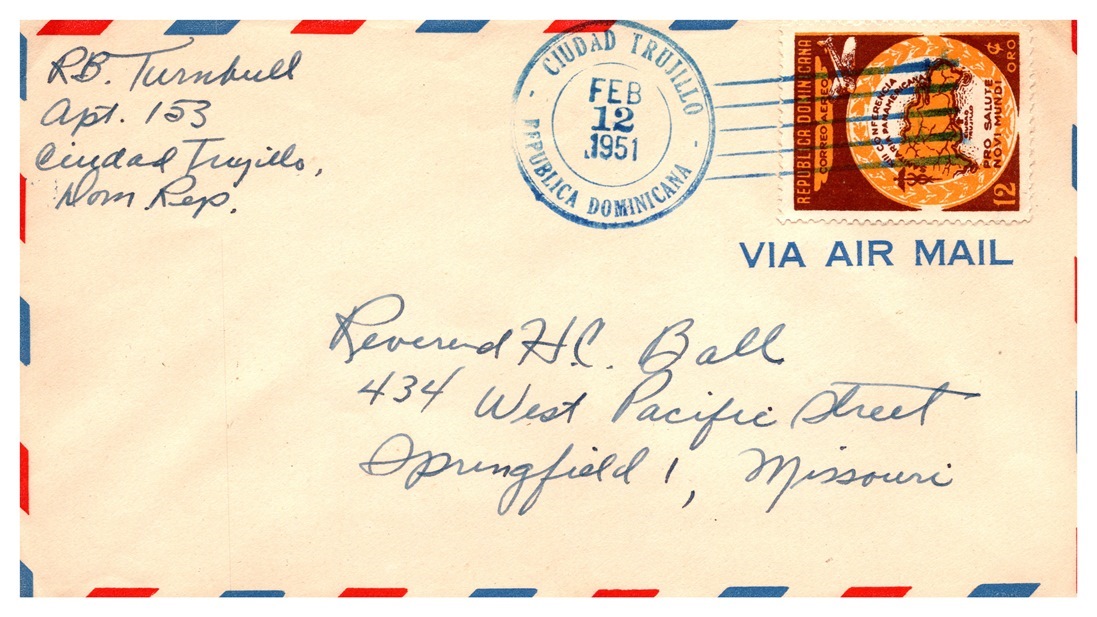 R.B. Turnbull
Apt. 153
Ciudad Trujillo,
Dom. Rep.
CIUDAD TRUJILLO
FEB
12
1951
REPUBLICA DOMINICANA
REPUBLICA DOMINICANA
CORREO AEREO
XIII CONFERENCIA
SANITARIA PANAMERICANA
PRO SALUTE
NOVI MUNDI
12
¢
ORO
VIA AIR MAIL
Reverend H.C. Ball
434 West Pacific Street
Springfield 1, Missouri